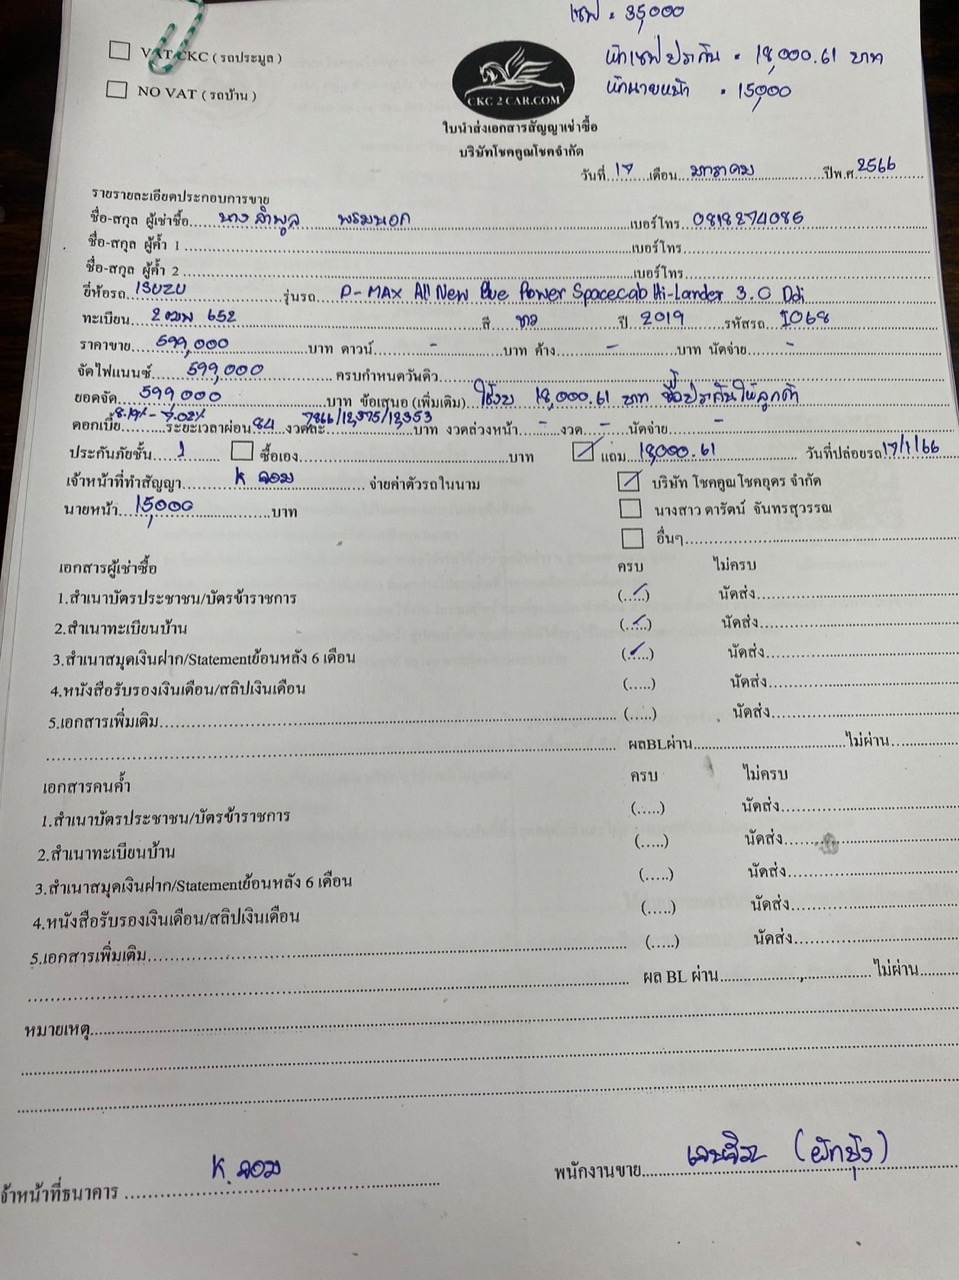 เซฟ = 35,000
VAT CKC ( รถประมูล )
หักเซฟประกัน = 18,000.61 บาท
NO VAT ( รถบ้าน )
หักนายหน้า = 15,000
CKC 2 CAR.COM
ใบนำส่งเอกสารสัญญาเช่าซื้อ
บริษัทโชคคูณโชคจำกัด
วันที่ 17 เดือน มกราคม ปีพ.ศ 2566
รายรายละเอียดประกอบการขาย
ชื่อ-สกุล ผู้เช่าซื้อ นาง ลำพูล พรมนอก เบอร์โทร 0818274086
ชื่อ-สกุล ผู้ค้ำ 1 เบอร์โทร
ชื่อ-สกุล ผู้ค้ำ 2 เบอร์โทร
ยี่ห้อรถ ISUZU รุ่นรถ D-MAX All New Blue Power Spacecab Hi-Lander 3.0 Ddi
ทะเบียน 2ฒพ 652 สี ขาว ปี 2019 รหัสรถ I068
ราคาขาย 599,000 บาท ดาวน์ - บาท ค้าง - บาท นัดจ่าย -
จัดไฟแนนซ์ 599,000 ครบกำหนดวันดิว
ยอดจัด 599,000 บาท ข้อเสนอ (เพิ่มเติม) ใช้งบ 18,000.61 บาท ซื้อประกันให้ลูกค้า
ดอกเบี้ย 8.19% - 7.02% ระยะเวลาผ่อน 84 งวดละ 7866/12,375/13,353 บาท งวดล่วงหน้า - งวด - นัดจ่าย -
ประกันภัยชั้น 1 ซื้อเอง บาท แถม 18,000.61 วันที่ปล่อยรถ 17/1/66
เจ้าหน้าที่ทำสัญญา K จอม จ่ายค่าตัวรถในนาม บริษัท โชคคูณโชคอุดร จำกัด
นายหน้า 15,000 บาท นางสาว ดารัตน์ จันทรสุวรรณ
อื่นๆ
เอกสารผู้เช่าซื้อ ครบ ไม่ครบ
1.สำเนาบัตรประชาชน/บัตรข้าราชการ (.....) นัดส่ง
2.สำเนาทะเบียนบ้าน (.....) นัดส่ง
3.สำเนาสมุดเงินฝาก/Statementย้อนหลัง 6 เดือน (.....) นัดส่ง
4.หนังสือรับรองเงินเดือน/สลิปเงินเดือน (.....) นัดส่ง
5.เอกสารเพิ่มเติม (.....) นัดส่ง
ผลBLผ่าน ไม่ผ่าน
เอกสารคนค้ำ ครบ ไม่ครบ
1.สำเนาบัตรประชาชน/บัตรข้าราชการ (.....) นัดส่ง
2.สำเนาทะเบียนบ้าน (.....) นัดส่ง
3.สำเนาสมุดเงินฝาก/Statementย้อนหลัง 6 เดือน (.....) นัดส่ง
4.หนังสือรับรองเงินเดือน/สลิปเงินเดือน (.....) นัดส่ง
5.เอกสารเพิ่มเติม (.....) นัดส่ง
ผล BL ผ่าน ไม่ผ่าน
หมายเหตุ
จ้าหน้าที่ธนาคาร K. จอม
พนักงานขาย (ผักบุ้ง)